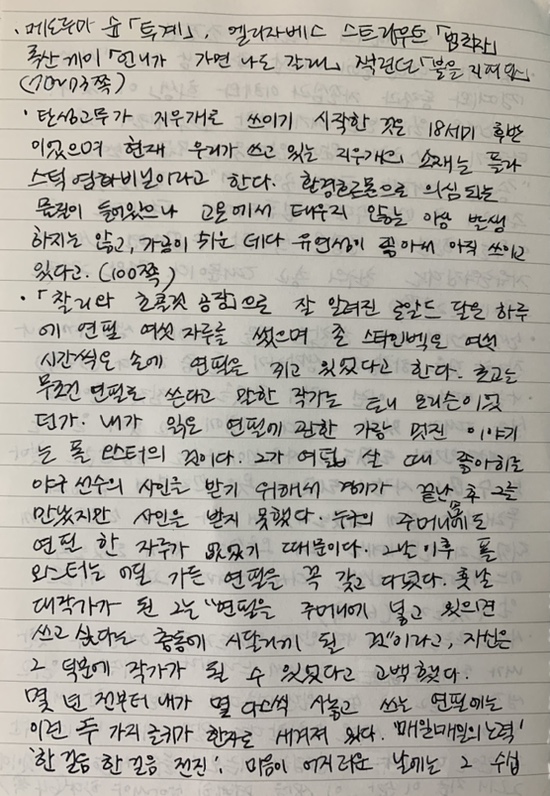 · 메도루마 슌「투계」, 엘리자베스 스트라우트「
룩산 게이「언니가 가면 나도 갈래」, 잭 런던「불을 지피다」
(70~73쪽)
· 탄성고무가 지우개로 쓰이기 시작한 것은 18세기 후반
이었으며 현재 우리가 쓰고 있는 지우개의 소재는 플라
스틱 염화비닐이라고 한다. 환경호르몬으로 의심되는
물질이 들어있으나 고온에서 태우지 않는 이상 발생
하지는 않고, 가공이 쉬운 데다 유연성이 좋아서 아직 쓰이고
있다고. (100쪽)
· 「찰리와 초콜릿 공장」으로 잘 알려진 로알드 달은 하루
에 연필 여섯 자루를 썼으며 존 스타인벡은 여섯
시간씩은 손에 연필을 쥐고 있었다고 한다. 초고는
무조건 연필로 쓴다고 말한 작가는 토니 모리슨이었
던가. 내가 읽은 연필에 관한 가장 멋진 이야기
는 폴 오스터의 것이다. 그가 여덟 살 때 좋아하는
야구 선수의 사인을 받기 위해서 경기가 끝난 후 그를
만났지만 사인은 받지 못했다. 누구의 주머니속에도
연필 한 자루가 없었기 때문이다. 그날 이후 폴
오스터는 어딜 가든 연필을 꼭 갖고 다녔다. 훗날
대작가가 된 그는 "연필을 주머니에 넣고 있으면
쓰고 싶다는 충동에 시달리게 될 것"이라고, 자신은
그 덕분에 작가가 될 수 있었다고 고백했다.
몇 년 전부터 내가 몇 다스씩 사놓고 쓰는 연필에는
이런 두 가지 글귀가 한자로 새겨져 있다. '매일매일의 노력'
'한 걸음 한 걸음 전진'. 마음이 어지러운 날에는 그 수십